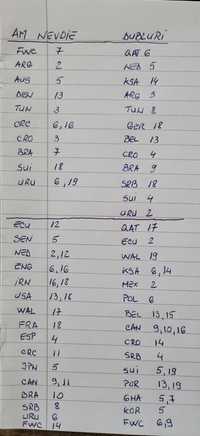 AM NEVOIE DUBLURI
FWC 7 QAT 6
ARG 2 NED 5
AUS 5 KSA 14
DEN 13 ARG 3
TUN 3 TUN 8
CRC 6,16 GER 18
CRO 3 BEL 13
BRA 7 CRO 4
SUI 18 BRA 9
URU 6,19 SRB 18
SUI 4
URU 2
ECU 12 QAT 17
SEN 5 ECU 2
NED 2,12 WAL 19
ENG 6,16 KSA 6,14
IRN 16,18 MEX 2
USA 13,16 POL 6
WAL 17 BEL 13,15
FRA 18 CAN 9,10,16
ESP 4 CRO 14
CRC 11 SRB 4
JPN 5 SUI 5,19
CAN 9,11 POR 13,19
BRA 10 GHA 5,7
SRB 8 KOR 5
URU 6 FWC 6,9
FWC 14